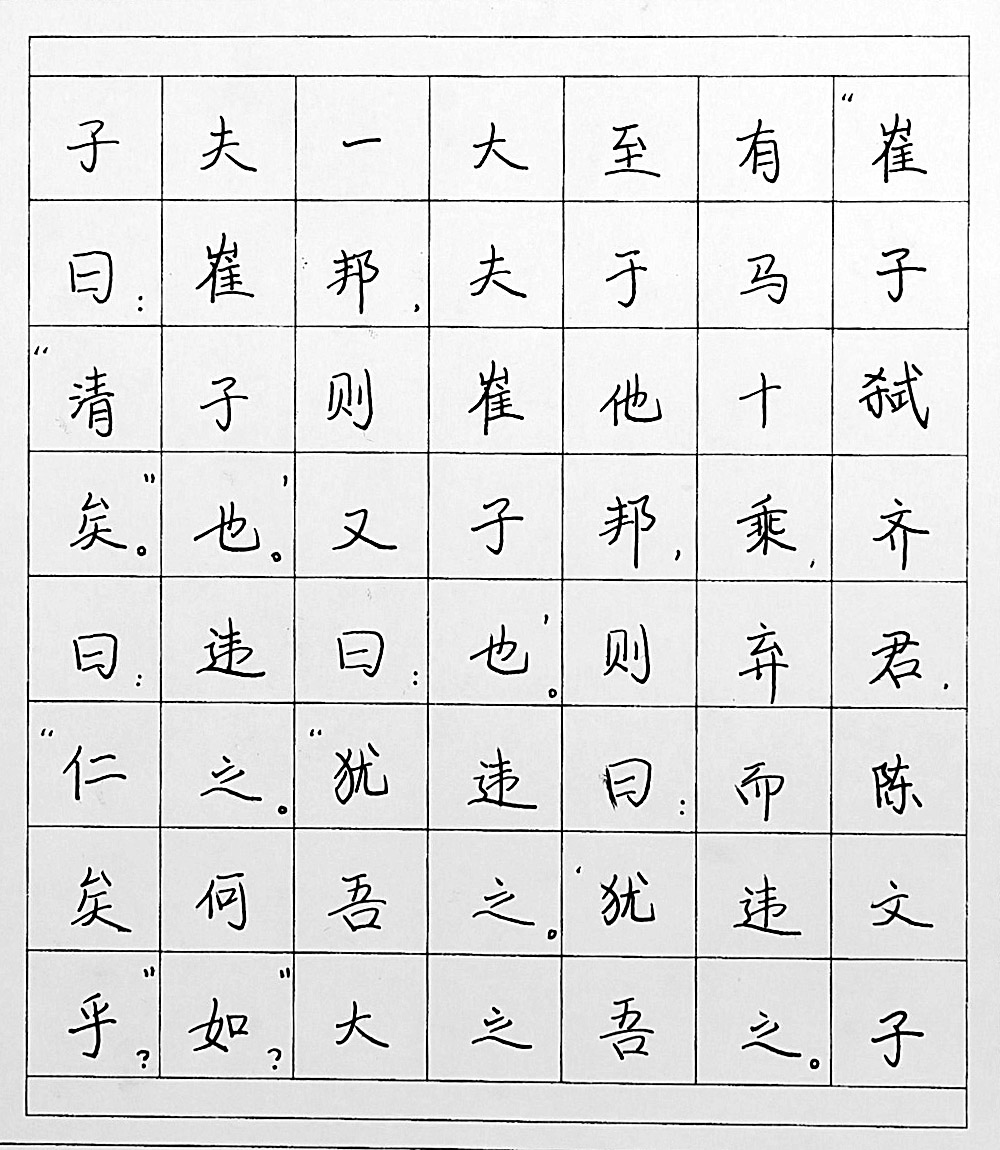 “崔子弑齐君，陈文子
有马十乘，弃而违之。
至于他邦，则曰：‘犹吾
大夫崔子也。’违之。之
一邦，则又曰：“犹吾大
夫崔子也。’违之。何如？”
子曰：“清矣。”曰：“仁矣乎？”